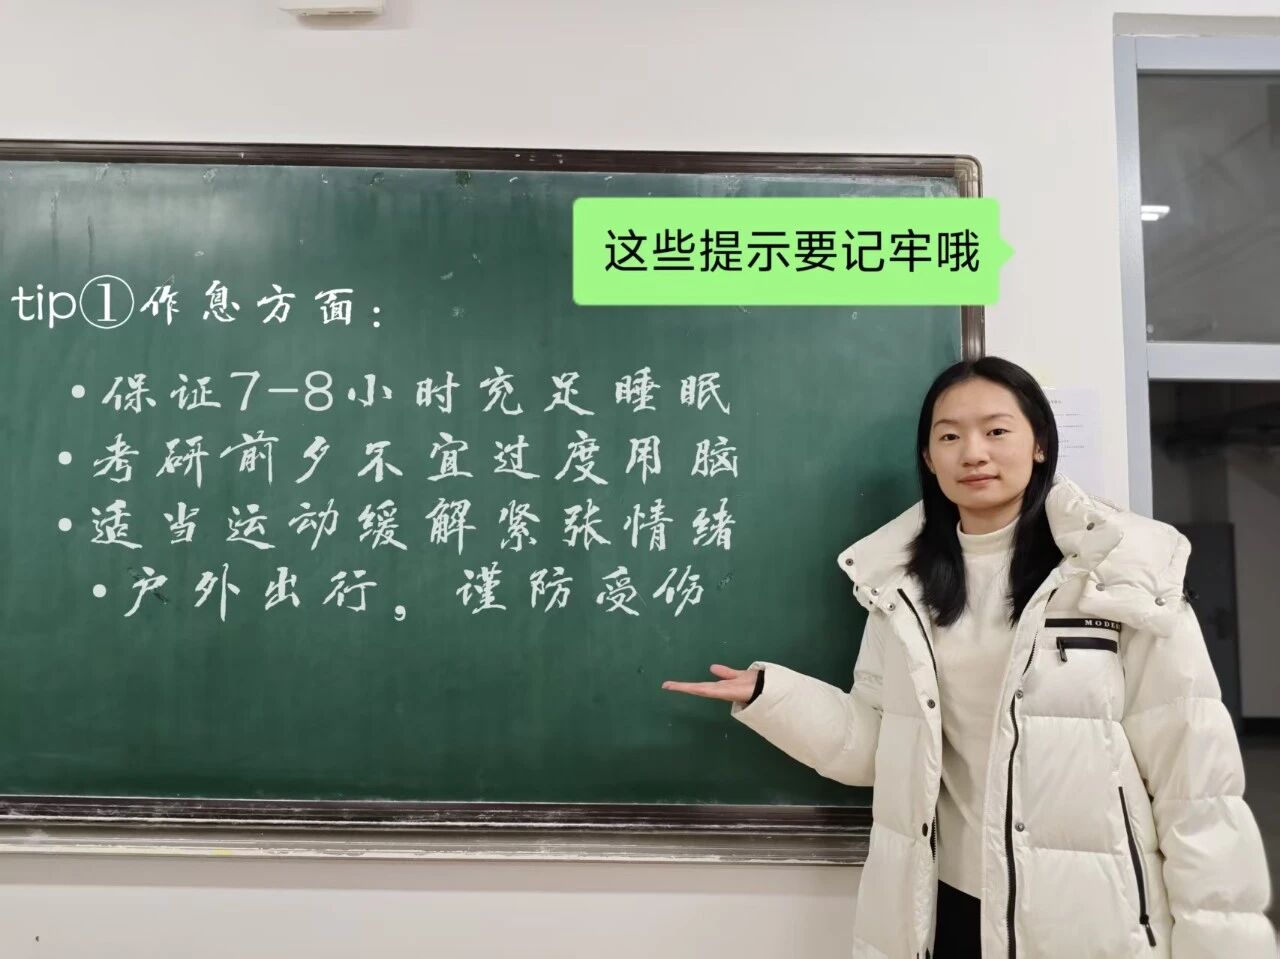 这些提示要记牢哦
tip①作息方面：
•保证7-8小时充足睡眠
•考研前夕不宜过度用脑
•适当运动缓解紧张情绪
•户外出行，谨防受伤
MODE